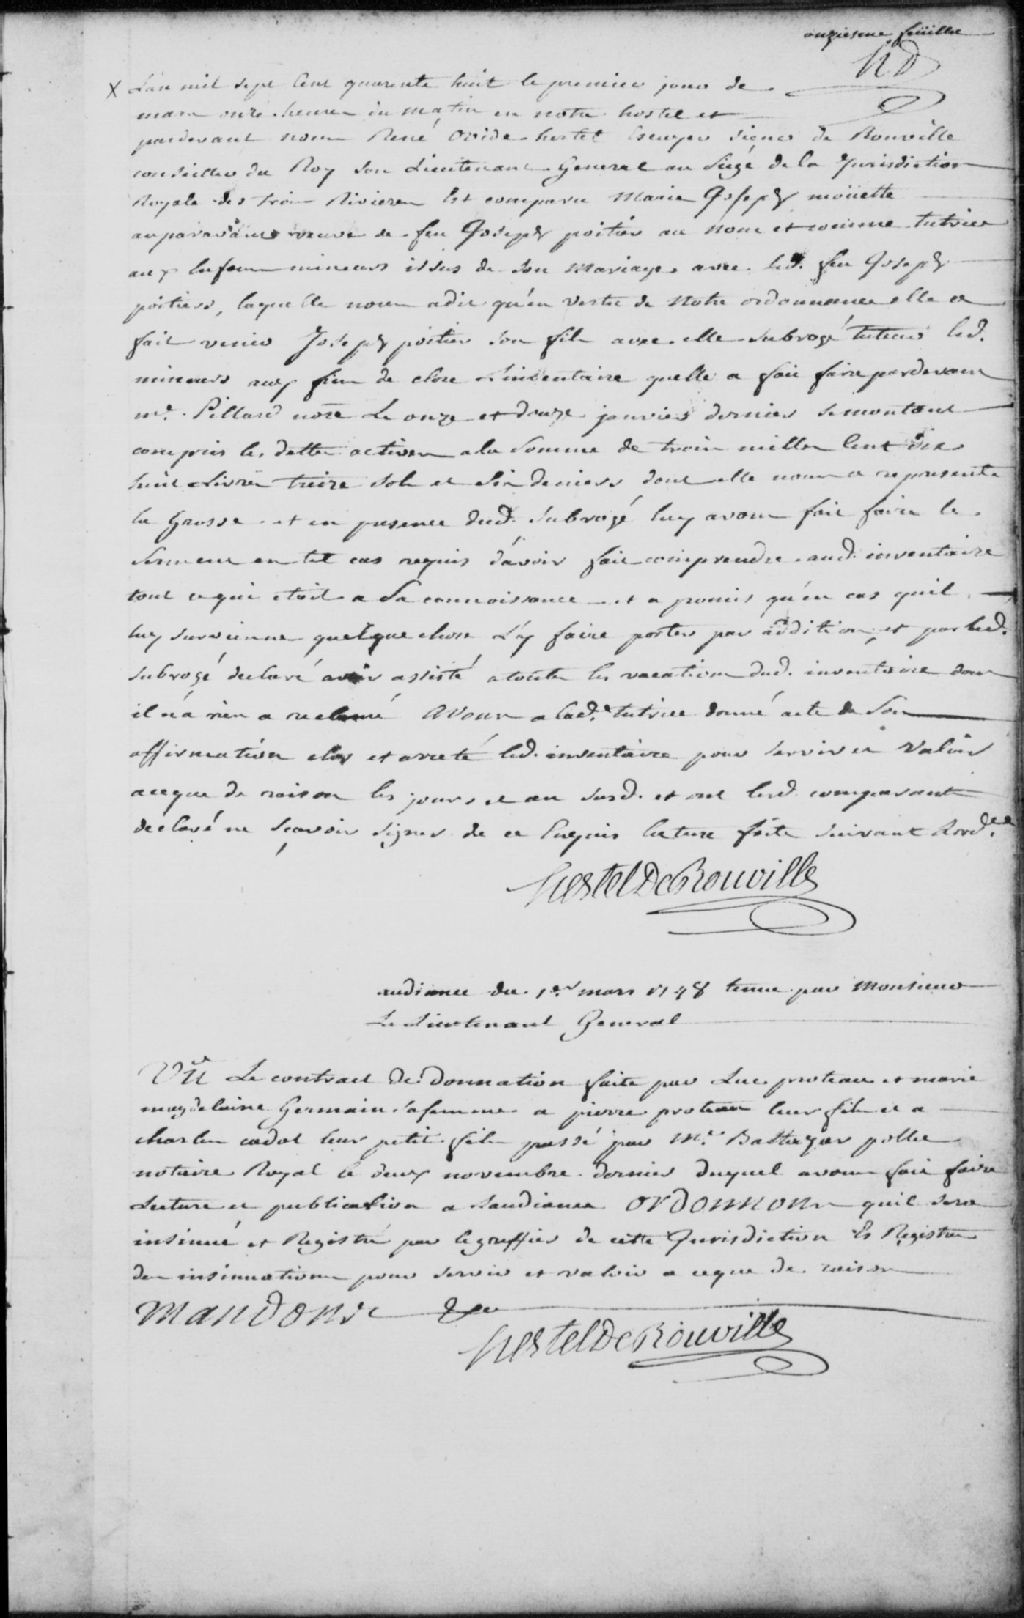 onziesme feüille
HD
X L'an mil sept Cent quarente huit le premier jour de
mars onze heures du matin en notre hostel et
pardevant nous René Ovide hertel Escuyer Signeur de Rouville
conseiller du Roy son Lieutenant General au Siége de la Jurisdiction
Royale des trois Rivieres Est comparu Marie Joseph moüette
auparavant veuve de feu Joseph poitier au nom et comme tutrice
aux Enfans mineurs issus de son mariage avec led. feu Joseph
poitiers, laquelle nous a dit qu'en vertu de Notre ordonnance elle a
fait venir Joseph poitier son fils avec elle subrogé tuteur lesd.
mineurs aux fins de clore L'inventaire quelle a fait faire pardevant
me. Pillard nore Le onze et douze janvier dernier se montant
compris les dettes actives a la Somme de trois milles Cent dix
huit Livres treize sols et six deniers dont elle nous a representé
la Grosse et en presence dud. Subrogé luy avons fait faire le
Serment en tel cas requis d'avoir fait comprendre aud. inventaire
tout ce qui etoit a Sa connoissance et a promis qu'en cas quil
luy survienne quelque chose L'y faire porter par addition, et par led.
Subrogé declaré avoir assisté a toutes les vacations dud. inventaire dont
il n'a rien a reclamé Avons a lad. tutrice donné acte de Son
affirmation clos et arreté led. inventaire pour servir et valoir
aceque de raison les jours et an susd. et ont lesd. comparant
declaré ne Sçavoir signer de ce Enquis lecture faite suivant Lordce.
Hertel De Rouville
audiance du 1er mars 1748 tenue par Monsieur
Le Lieutenant General
Vû Le contract de Donnation faite par Luc proteau et marie
magdelaine Germain sa femme a pierre proteau leur fils et a
charles cadot leur petit fils passé par Me. Baltazar pollet
notaire Royal le deux novembre dernier duquel avons fait faire
Lecture et publication a Laudiance Ordonnons quil sera
insinué et Registré par le greffier de cette Jurisdiction Es Registres
des insinuations pour servir et valoir a ceque de raison
Mandons &c
Hertel De Rouville